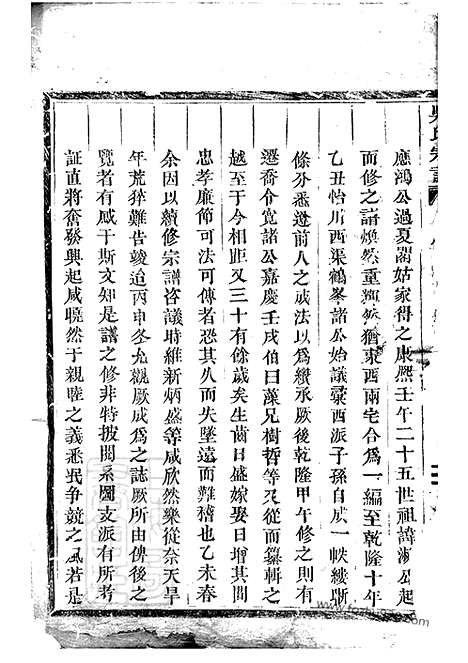 吳氏宗譜
應鴻公過夏閣姑家得之康熙壬午二十五世祖諱 公起
而修之譜煥然重 然猶東西兩宅合為一編至乾隆十年
乙丑怡川西渠鶴峯諸公始議彚西派子孫自成一帙縷晣
條分悉遵前人之成法以為纘承厥後乾隆甲午修之有
遷喬介寬諸公嘉慶壬戌伯曰藻兄樹哲等又從而纂輯之
越至于今相距又三十有餘歲矣生齒日盛嫁娶日增其間
忠孝廉節可法可傳者恐其久而失墜遠而難稽也乙未春
余因以續修宗譜咨議時維新炳盛等咸欣然樂從奈天旱
年荒猝難告竣迨丙申冬允觀厥成為之誌厥所由俾後之
覽者有感于斯文知是譜之修非特披閱系圖支派有所考
証直將奮發興起咸曉然于親睦之義悉泯爭競之風若是